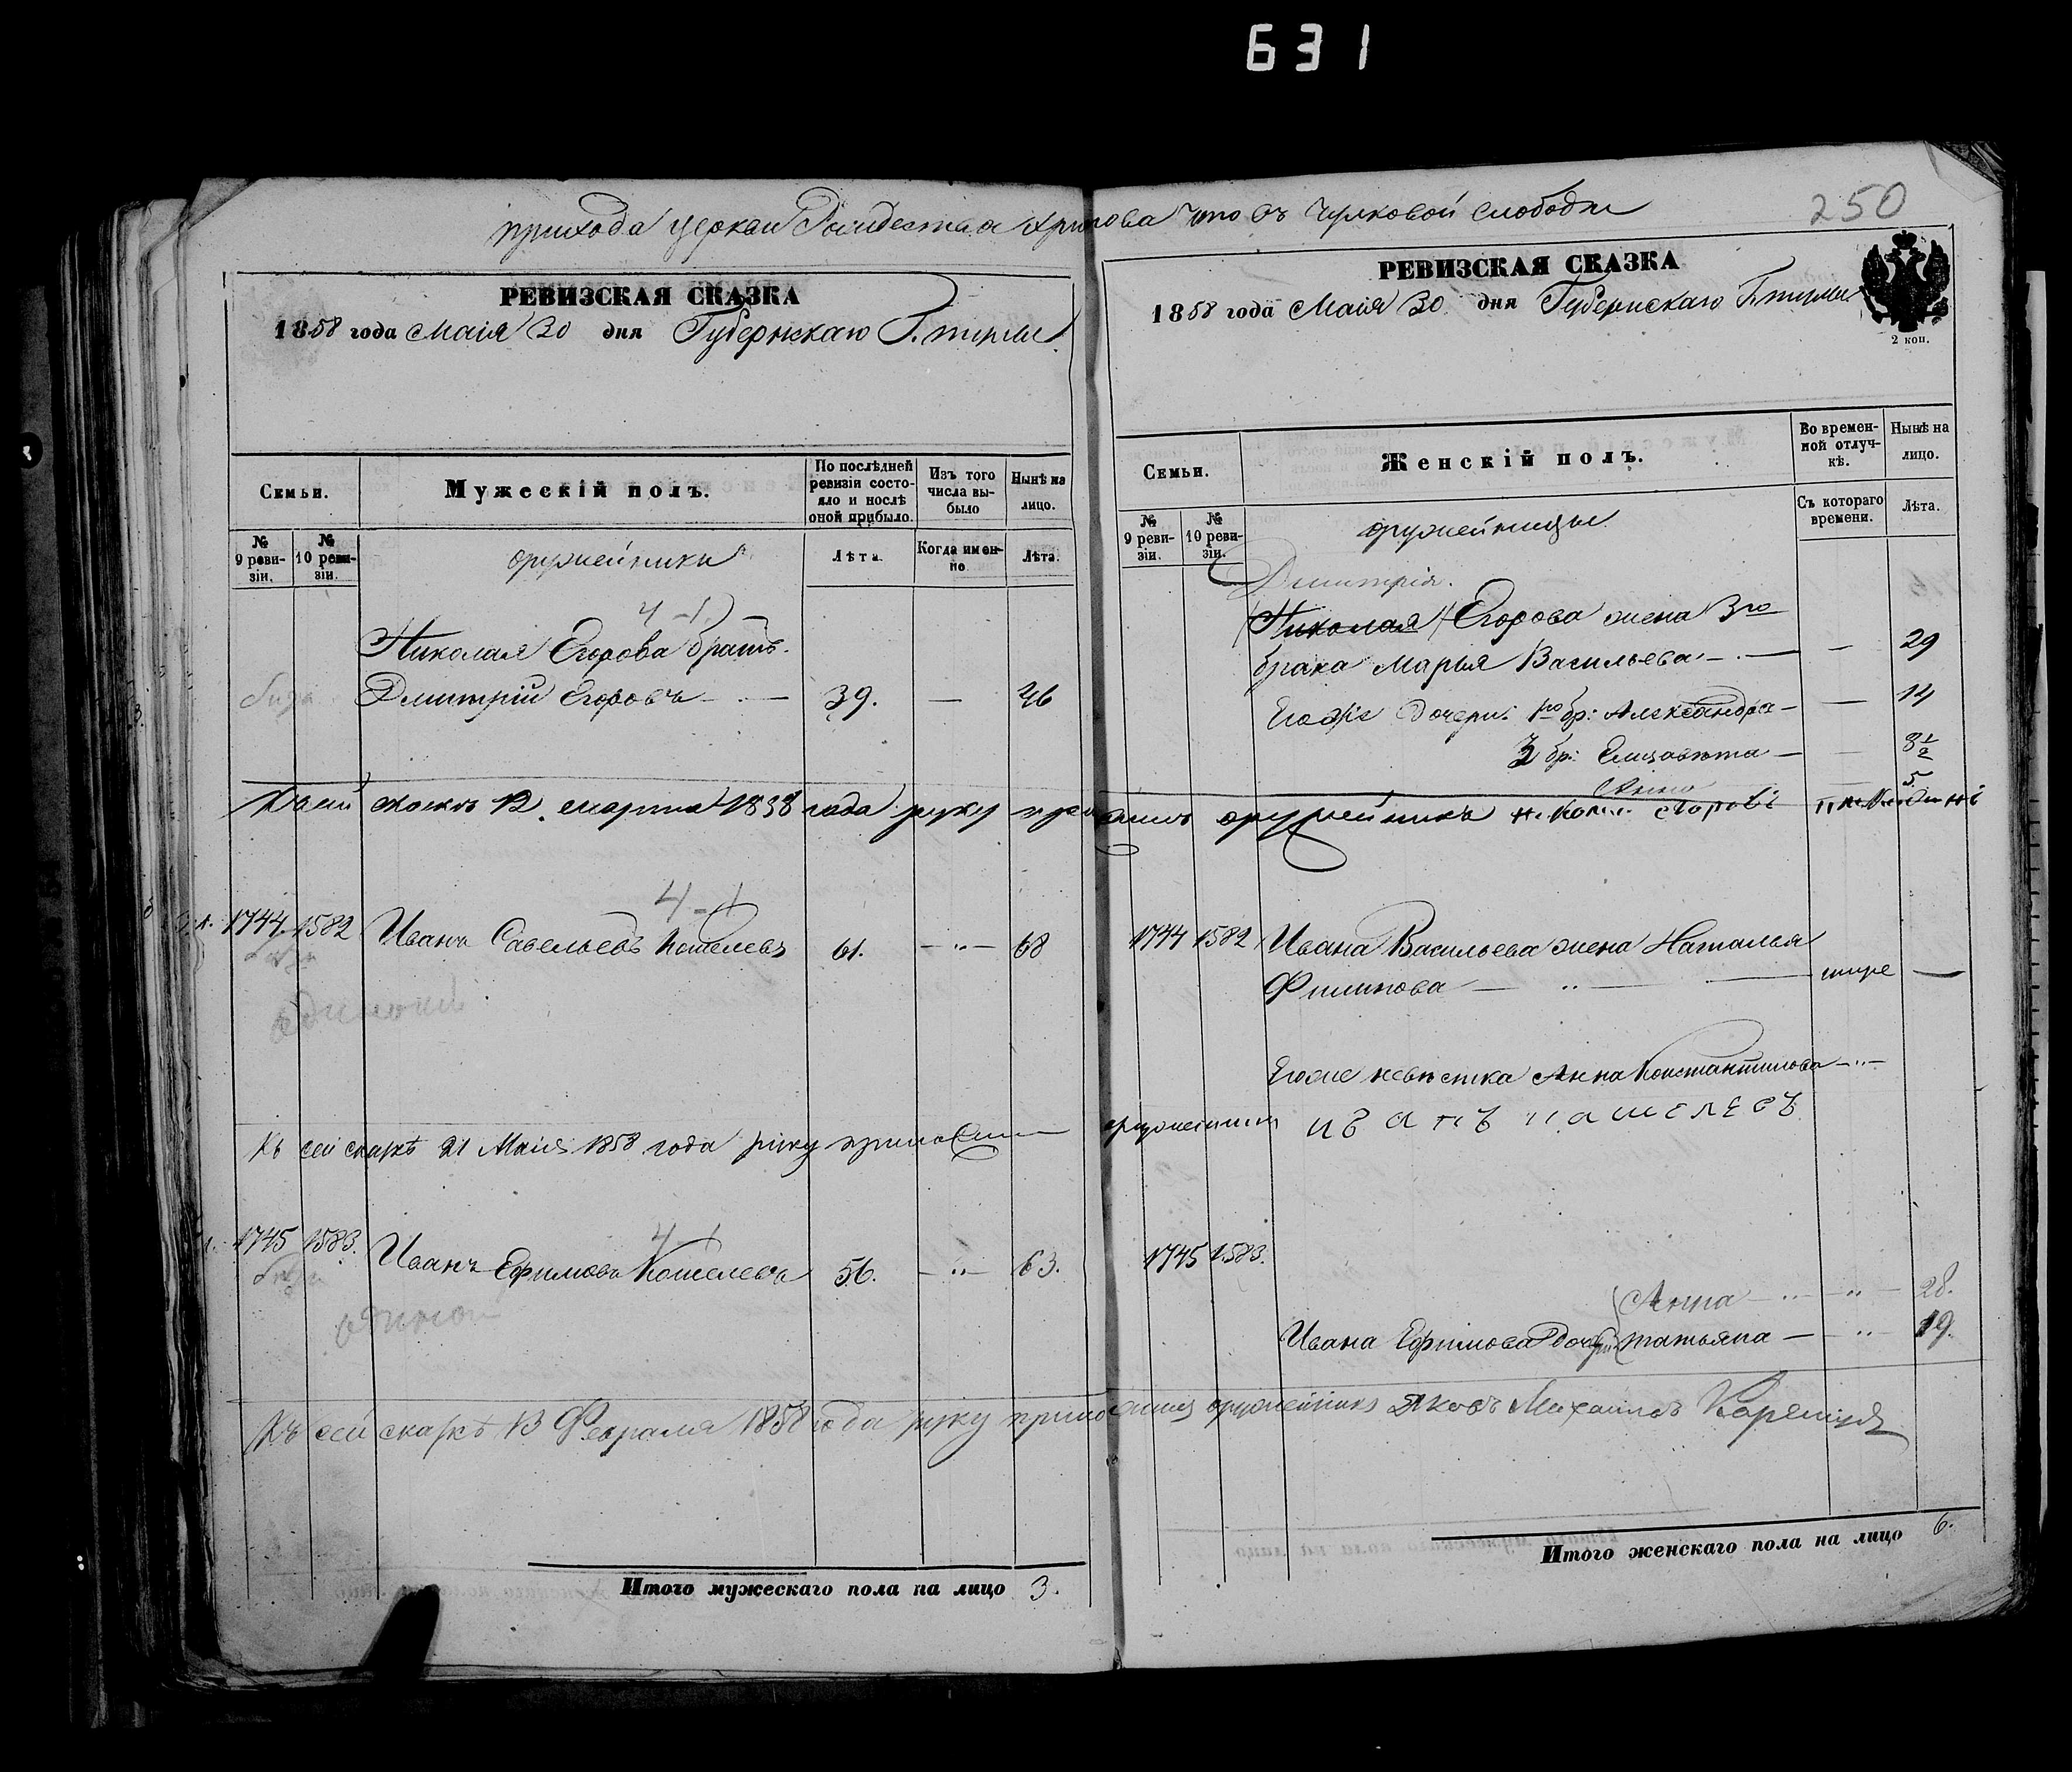 631
250
прихода церкви Рождества Христова что въ Чулковой слободы
РЕВИЗСКАЯ СКАЗКА
1858 года Маія 30 дня Губернскаго Г. Тулы
Семьи.
Мужескій полъ.
По послѣдней ревизіи состояло и послѣ оной прибыло.
Изъ того числа выбыло
Нынѣ на лицо.
№ 9 ревизіи.
№ 10 ревизіи.
оружейники
Лѣта.
Когда именно
Лѣта.
4-1
Николая Егорова братъ.
Дмитрій Егоровъ — 39. — 46
12 марта 1858 года руку
4-1
1744. 1582 Иванъ Савельевъ Кошелевъ 61. — „ — 68
одинокій
Къ сей скаскѣ 21 Маія 1858 года руку приложилъ
4-1
1745 1583. Иванъ Ефимовъ Кошелевъ 56. — „ — 63.
Къ сей скаскѣ 13 Февраля 1858 года руку приложилъ
Итого мужескаго пола на лицо 3.
РЕВИЗСКАЯ СКАЗКА
1858 года Маія 30 дня Губернскаго Г. Тулы
2 коп.
Семьи.
Женскій полъ.
Во временной отлучкѣ.
Нынѣ на лицо.
№ 9 ревизіи.
№ 10 ревизіи.
оружейницы
Съ котораго времени.
Лѣта.
Дмитрія.
Николая Егорова жена 3го
брака Марья Васильева — — 29
Егоже дочери: 1го бр: Александра — — 14
3 бр: Елизавета — — 8½
Анна 5
оружейникъ
1744 1582 Ивана Васильева жена Наталья
Филипова — „ — умре —
Егоже невѣстка Анна Константинова — „ —
оружейникъ иванъ кашелевъ
1745 1583.
Анна — „ — „ — 28.
Ивана Ефимова дочери Татьяна — „ — 19.
оружейникъ Яковъ Михайловъ
Итого женскаго пола на лицо 6.